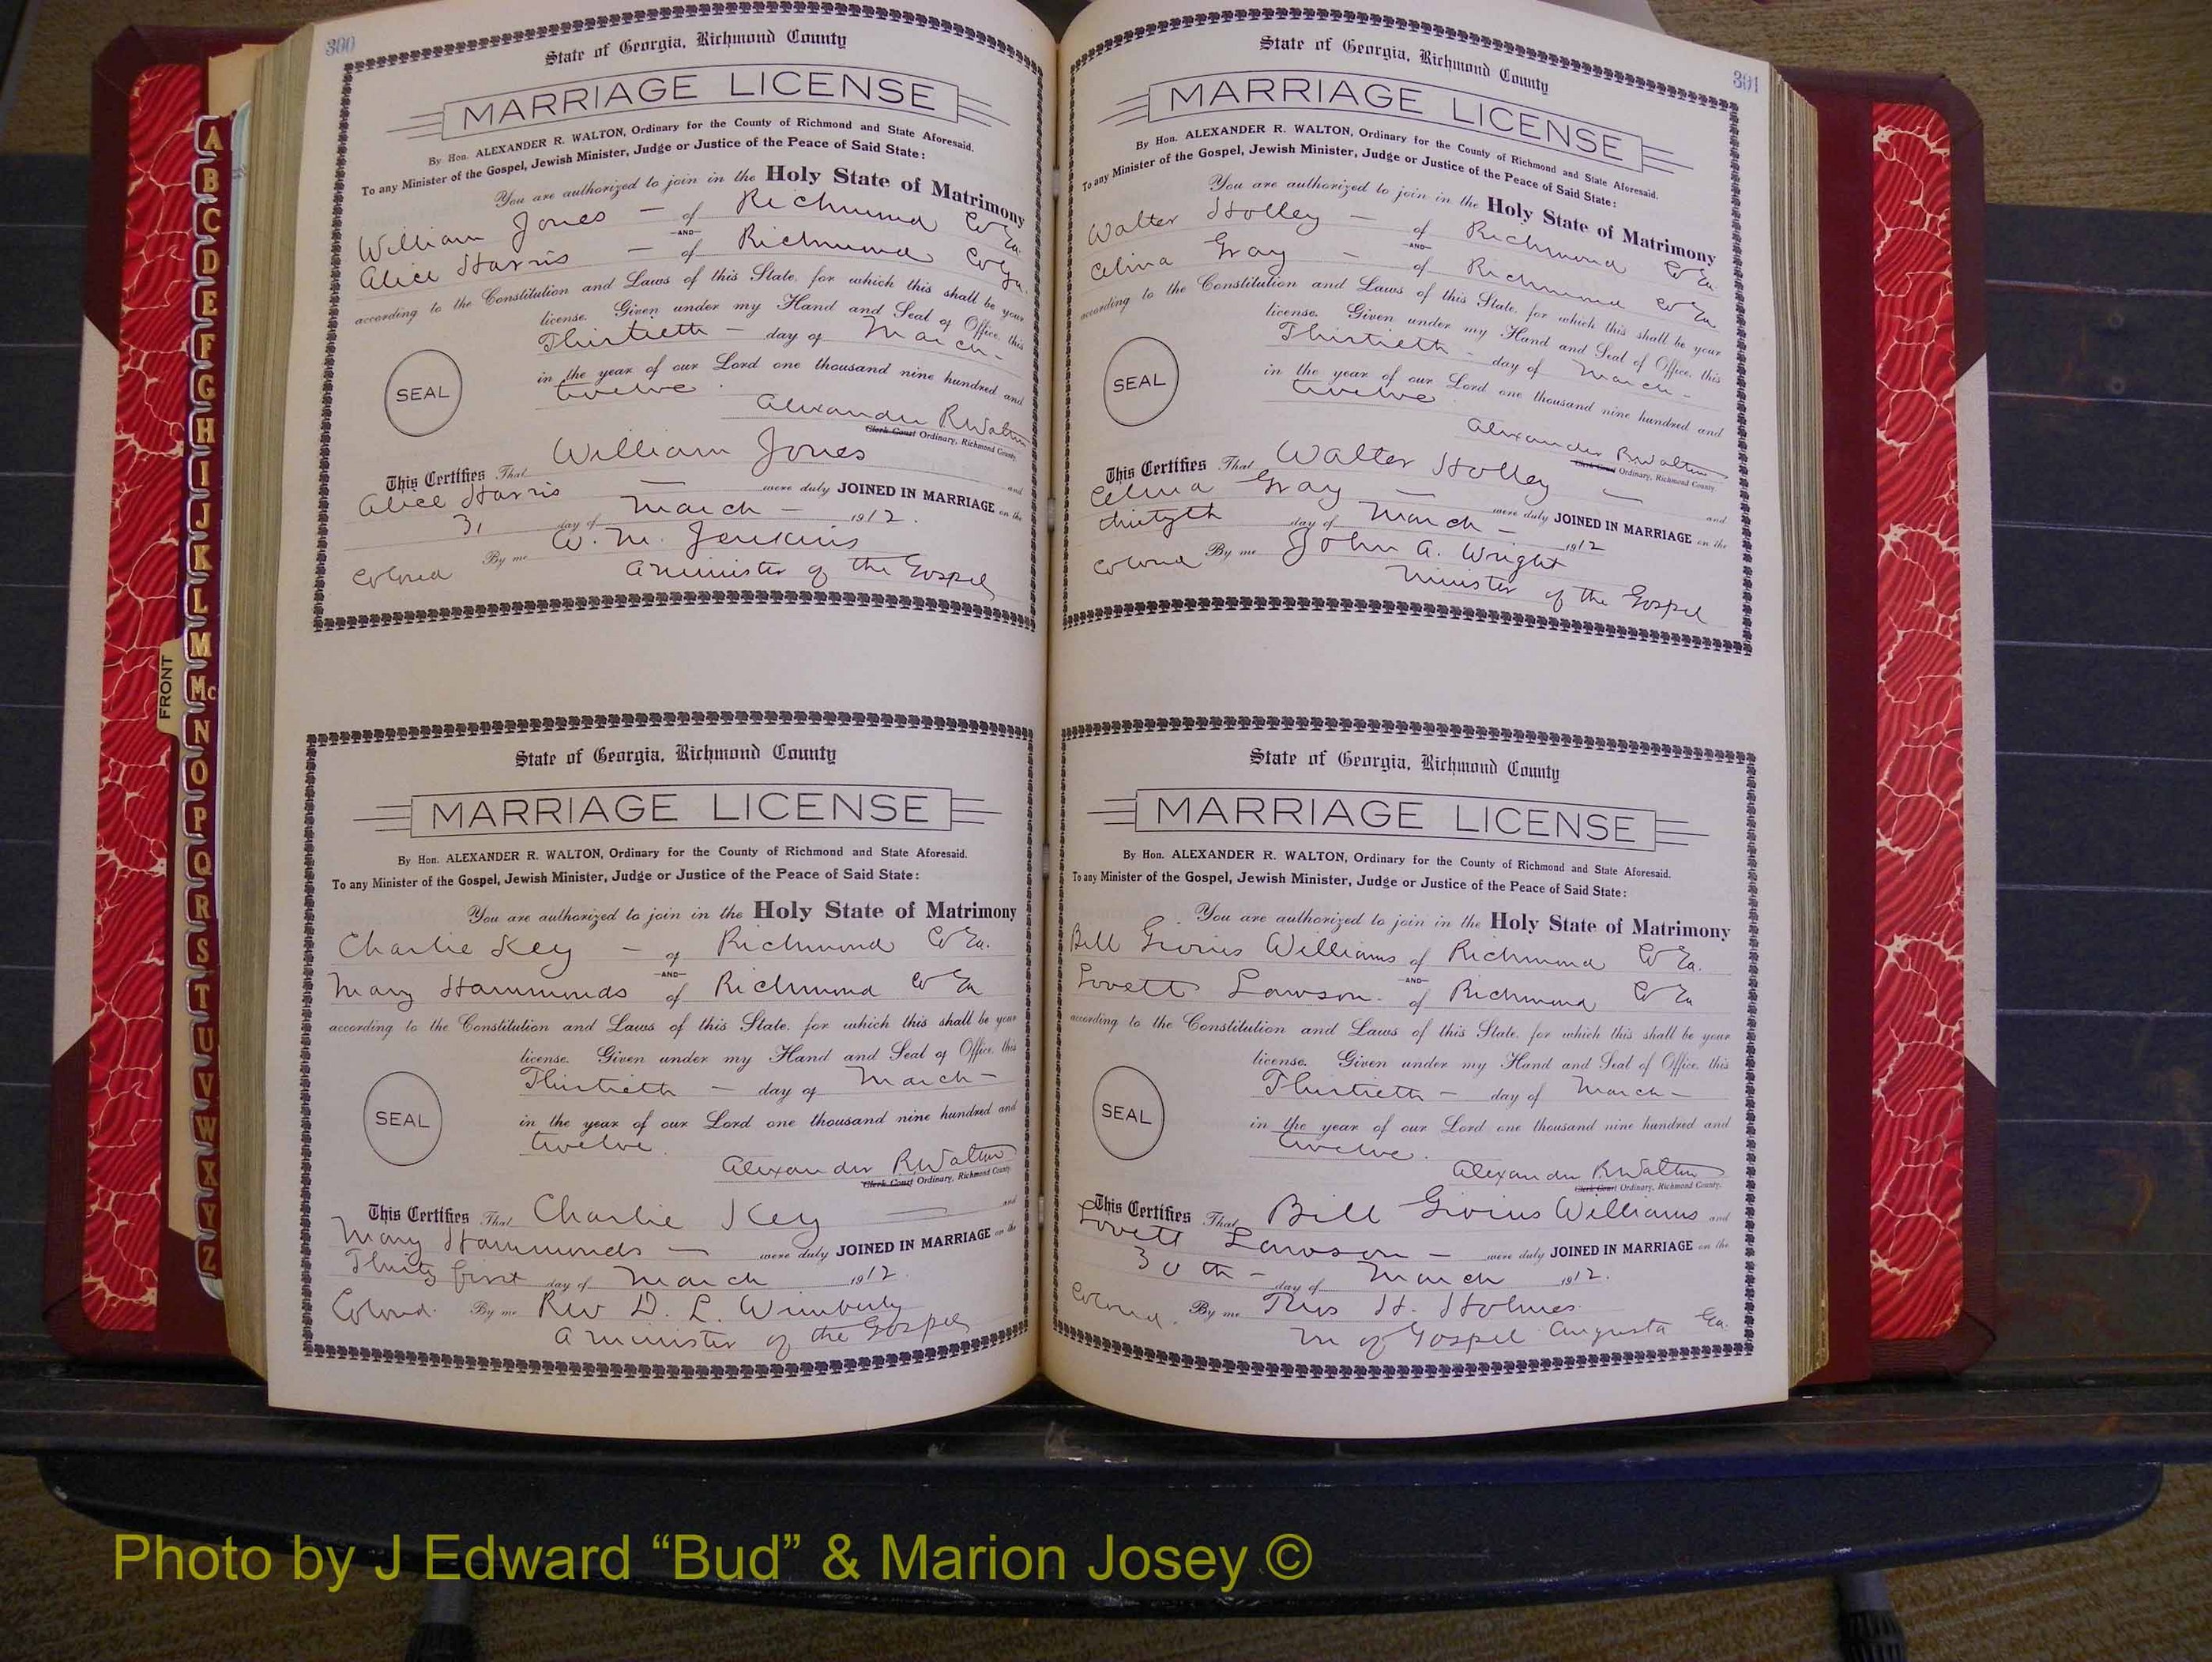 300
State of Georgia, Richmond County
MARRIAGE LICENSE
By Hon. ALEXANDER R. WALTON, Ordinary for the County of Richmond and State Aforesaid.
To any Minister of the Gospel, Jewish Minister, Judge or Justice of the Peace of Said State:
You are authorized to join in the Holy State of Matrimony
William Jones — of Richmond Co Ga.
—AND—
Alice Harris — of Richmond Co Ga.
according to the Constitution and Laws of this State, for which this shall be your
license. Given under my Hand and Seal of Office, this
Thirtieth — day of March —
in the year of our Lord one thousand nine hundred and
twelve.
SEAL
Alexander R Walton
Clerk Court Ordinary, Richmond County.
This Certifies That William Jones and
Alice Harris — were duly JOINED IN MARRIAGE on the
31 day of March — 1912.
Colored By me W. M. Jenkins
a minister of the Gospel
State of Georgia, Richmond County
MARRIAGE LICENSE
By Hon. ALEXANDER R. WALTON, Ordinary for the County of Richmond and State Aforesaid.
To any Minister of the Gospel, Jewish Minister, Judge or Justice of the Peace of Said State:
You are authorized to join in the Holy State of Matrimony
Charlie Key — of Richmond Co Ga.
—AND—
Mary Hammonds of Richmond Co Ga
according to the Constitution and Laws of this State, for which this shall be your
license. Given under my Hand and Seal of Office, this
Thirtieth — day of March —
in the year of our Lord one thousand nine hundred and
twelve.
SEAL
Alexander R Walton
Clerk Court Ordinary, Richmond County.
This Certifies That Charlie Key and
Mary Hammonds — were duly JOINED IN MARRIAGE on the
Thirty first day of March 1912.
Colored. By me Rev D. L. Wimberly
a minister of the Gospel
301
State of Georgia, Richmond County
MARRIAGE LICENSE
By Hon. ALEXANDER R. WALTON, Ordinary for the County of Richmond and State Aforesaid.
To any Minister of the Gospel, Jewish Minister, Judge or Justice of the Peace of Said State:
You are authorized to join in the Holy State of Matrimony
Walter Holley — of Richmond Co Ga.
—AND—
Celina Gray — of Richmond Co Ga
according to the Constitution and Laws of this State, for which this shall be your
license. Given under my Hand and Seal of Office, this
Thirtieth — day of March —
in the year of our Lord one thousand nine hundred and
twelve.
SEAL
Alexander R Walton
Clerk Court Ordinary, Richmond County.
This Certifies That Walter Holley — and
Celina Gray — were duly JOINED IN MARRIAGE on the
thirtyth day of March — 1912
Colored By me John A. Wright
Minister of the Gospel
State of Georgia, Richmond County
MARRIAGE LICENSE
By Hon. ALEXANDER R. WALTON, Ordinary for the County of Richmond and State Aforesaid.
To any Minister of the Gospel, Jewish Minister, Judge or Justice of the Peace of Said State:
You are authorized to join in the Holy State of Matrimony
Bill Givins Williams of Richmond Co Ga.
—AND—
Lovett Lawson. of Richmond Co Ga
according to the Constitution and Laws of this State, for which this shall be your
license. Given under my Hand and Seal of Office, this
Thirtieth — day of March —
in the year of our Lord one thousand nine hundred and
twelve.
SEAL
Alexander R Walton
Clerk Court Ordinary, Richmond County.
This Certifies That Bill Givins Williams and
Lovett Lawson — were duly JOINED IN MARRIAGE on the
30th — day of March 1912.
Colored. By me Thos H. Holmes.
M of Gospel Augusta Ga.
FRONT
A
B
C
D
E
F
G
H
I
J
K
L
M
Mc
N
O
P
Q
R
S
T
U
V
W
X
Y
Z
Photo by J Edward “Bud” & Marion Josey ©